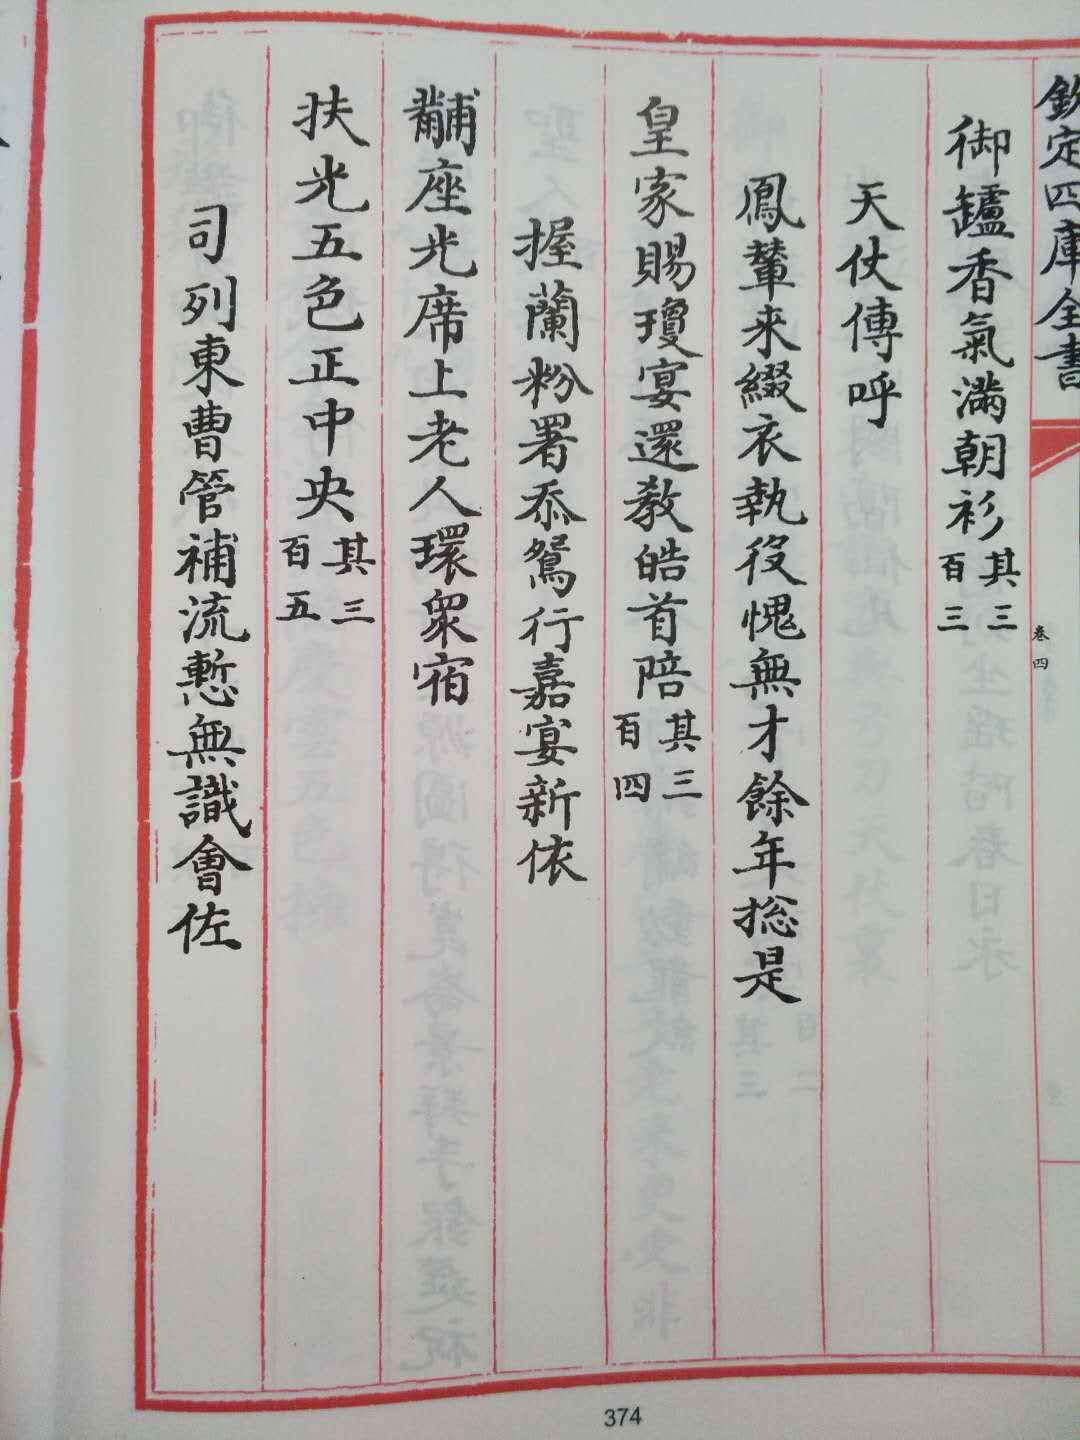 欽定四庫全書
卷四
御鑪香氣滿朝衫其三百三
天仗傳呼
鳳輦來綴衣執役愧無才餘年捴是
皇家賜瓊宴還教皓首陪其三百四
握蘭粉署忝鴛行嘉宴新依
黼座光席上老人環衆宿
扶光五色正中央其三百五
司列東曹管補流慙無識會佐
374